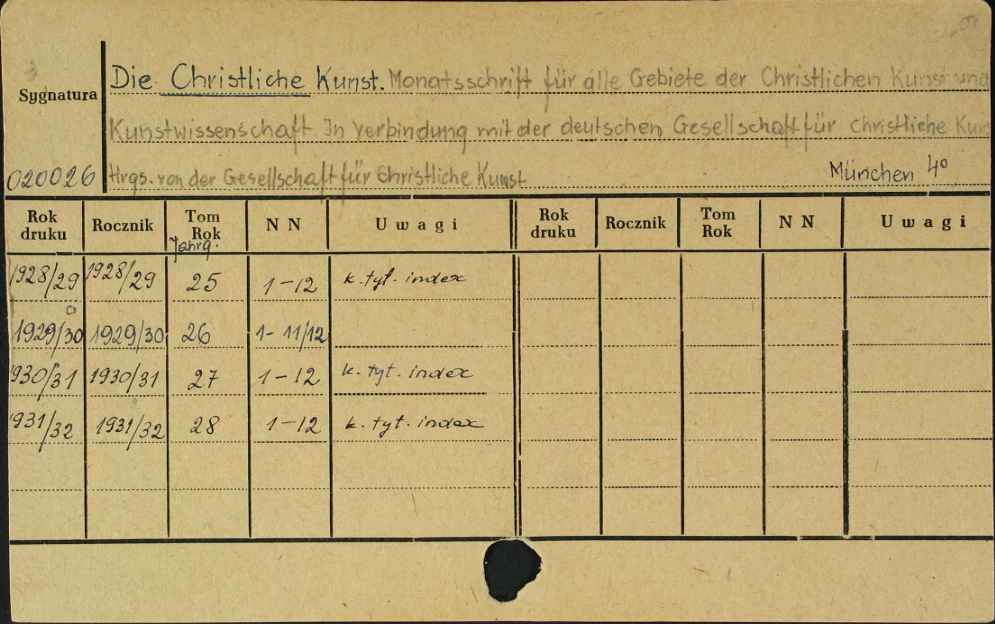 Die Christliche Kunst. Monatsschrift für alle Gebiete der Christlichen Kunst und
Sygnatura
Kunstwissenschaft. In Verbindung mit der deutschen Gesellschaft für christliche Kun
020026 Hrgs. von der Gesellschaft für Christliche Kunst München 4°
Rok druku Rocznik Tom Rok N N Uwagi Rok druku Rocznik Tom Rok N N Uwagi
Jahrg.
1928/29 1928/29 25 1-12 k. tyt. index
1929/30 1929/30 26 1-11/12
930/31 1930/31 27 1-12 k. tyt. index
1931/32 1931/32 28 1-12 k. tyt. index